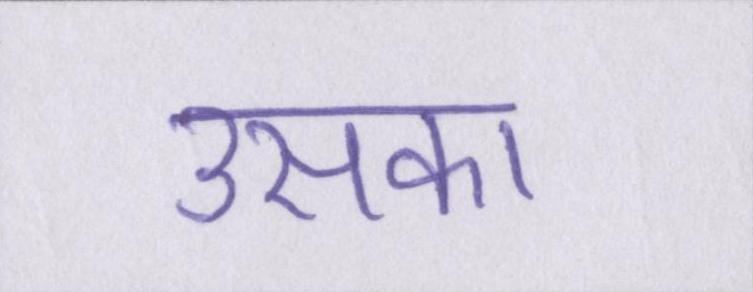 उसका